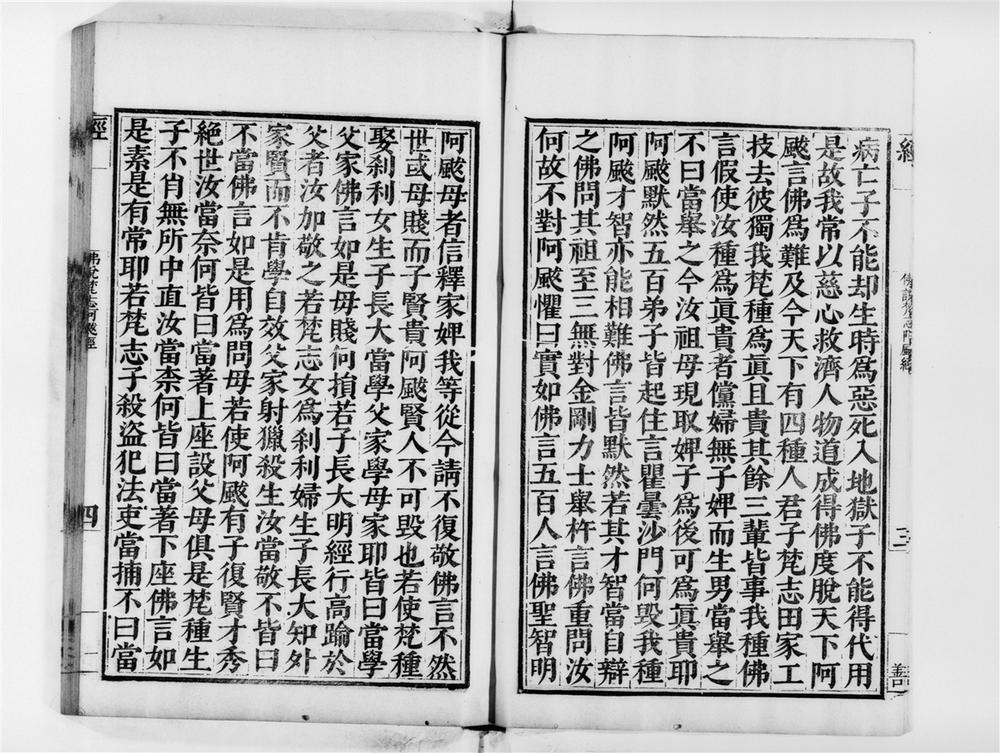 病亡子不能却生時爲惡死入地獄子不能得代用
是故我常以慈心救濟人物道成得佛度脫天下阿
颰言佛爲難及今天下有四種人君子梵志田家工
技去彼獨我梵種爲眞且貴其餘三輩皆事我種佛
言假使汝種爲眞貴者儻婦無子婢而生男當舉之
不曰當舉之今汝祖母現取婢子爲後可爲眞貴耶
阿颰默然五百弟子皆起住言瞿曇沙門何毀我種
阿颰才智亦能相難佛言皆默然若其才智當自辯
之佛問其祖至三無對金剛力士舉杵言佛重問汝
何故不對阿颰懼曰實如佛言五百人言佛聖智明
三
善
阿颰母者信釋家婢我等從今請不復敬佛言不然
世或母賤而子賢貴阿颰賢人不可毀也若使梵種
娶刹利女生子長大當學父家學母家耶皆曰當學
父家佛言如是毋賤何損若子長大明經行高踰於
父者汝加敬之若梵志女爲刹利婦生子長大知外
家賢而不肯學自效父家射獵殺生汝當敬不皆曰
不當佛言如是用爲問母若使阿颰有子復賢才秀
絕世汝當奈何皆曰當著上座設父母俱是梵種生
子不肖無所中直汝當柰何皆曰當著下座佛言如
是素是有常耶若梵志子殺盜犯法吏當捕不曰當
經
佛說梵志阿颰經
四